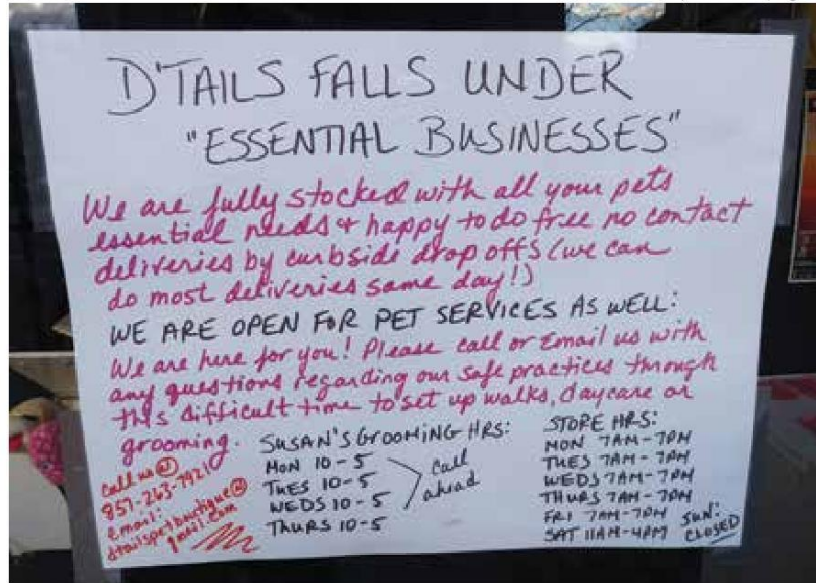 D'TAILS FALLS UNDER
"ESSENTIAL BUSINESSES"
We are fully stocked with all your pets
essential needs & happy to do free no contact
deliveries by curbside drop offs (we can
do most deliveries same day!)
WE ARE OPEN FOR PET SERVICES AS WELL:
We are here for you! Please call or Email us with
any questions regarding our safe practices through
this difficult time to set up walks, daycare or
grooming.
call us @
857-263-7921
email:
dtailspetboutique@
gmail.com
SUSAN'S GROOMING HRS:
MON 10-5
TUES 10-5
WEDS 10-5
THURS 10-5
call
ahead
STORE HRS:
MON 7AM-7PM
TUES 7AM-7PM
WEDS 7AM-7PM
THURS 7AM-7PM
FRI 7AM-7PM
SAT 11AM-4PM
SUN:
CLOSED